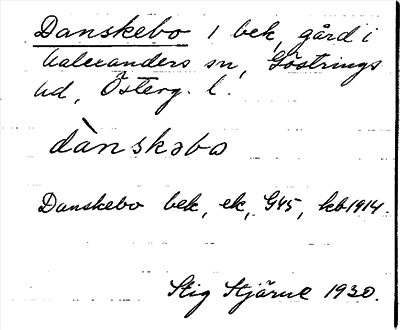 Danskebo 1 bek, gård i
Valexanders sn, Göstrings
hd, Österg. l.
dànskəbo
Danskebo bek, ek, G45, kb 1914.
Stig Stjärne 1930.